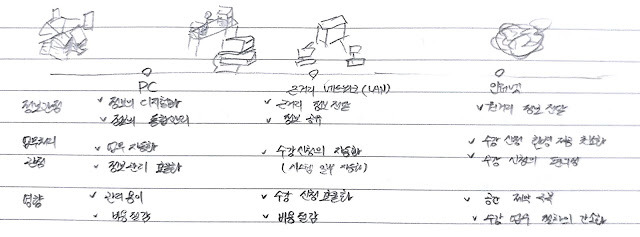 PC 근거리 네트워크(LAN) 인터넷
정보관점 ✓ 정보의 디지털화 ✓ 근거리 정보 전달 ✓ 원거리 정보 전달
✓ 정보의 통합관리 ✓ 정보 공유
업무처리 ✓ 업무 자동화 ✓ 수강신청의 자동화 ✓ 수강 신청 관련 비용 최소화
관점 ✓ 정보관리 효율화 (시스템 일부 자동화) ✓ 수강 신청의 편리성
영향 ✓ 관리 용이 ✓ 수강 신청 효율화 ✓ 공간 제약 극복
✓ 비용 절감 ✓ 비용 절감 ✓ 수강 업무 절차의 간소화